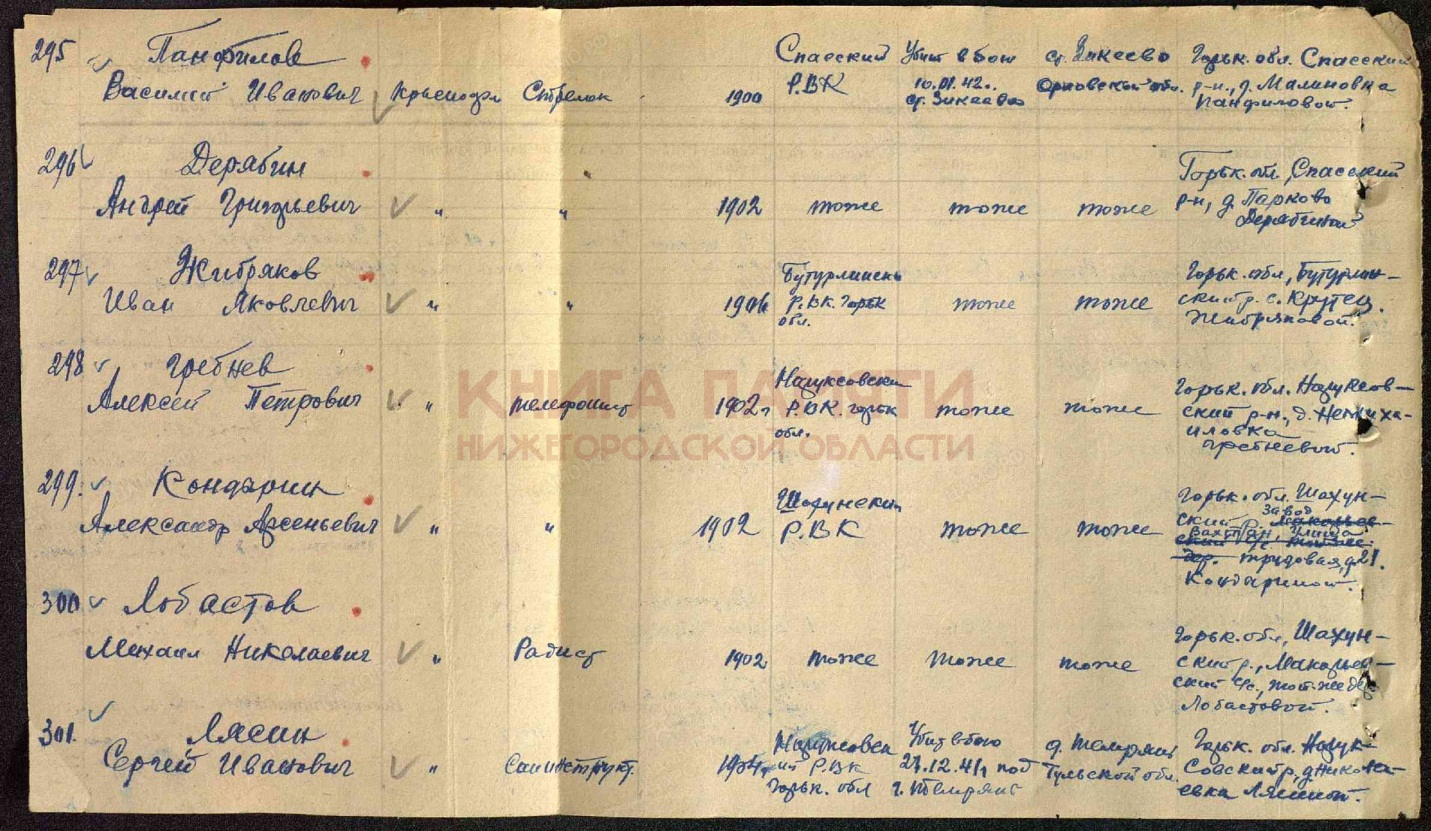 295 Панфилов
Василий Иванович Красноарм Стрелок 1900 Спасский Р.ВК Убит в бою 10.01.42г. ст. Зикеево ст. Зикеево Орловской обл. Горьк. обл. Спасский р-н, д. Малиновка Панфиловой.
296 Дерябин
Андрей Григорьевич " " 1902 тоже тоже тоже Горьк. обл, Спасский р-н, д. Парково Дерябиной
297 Жибряков
Иван Яковлевич " " 1906 Бутурлинск Р.ВК. Горьк обл. тоже тоже Горьк. обл, Бутурлин-ский р. с. Крутец. Жибряковой.
298 Гребнев
Алексей Петрович " телефонист 1902г Наруксовски Р.ВК. Горьк обл. тоже тоже Горьк. обл. Наруксов-ский р-н., д. Гребневой.
299. Кондарин
Александр Арсеньевич " " 1902 Шахунский Р.ВК тоже тоже Горьк. обл. Шахун-ский р. завод Вахтан, Улица Трудовая, д 21. Кондариной.
300 Лобастов
Михаил Николаевич " Радист 1902 тоже тоже тоже Горьк. обл, Шахун-ский р., Макарьев-ский с/с., тот-же дер Лобастовой.
301. Лясин
Сергей Иванович " Санинструкт. Наруксовск ий Р.ВК Горьк. обл Убит в бою 27.12.41г под д. Темряне д. Темряне Тульской обл. Горьк. обл. Нарук-совский р, д Никола-евка Лясиной.
КНИГА ПАМЯТИ
НИЖЕГОРОДСКОЙ ОБЛАСТИ